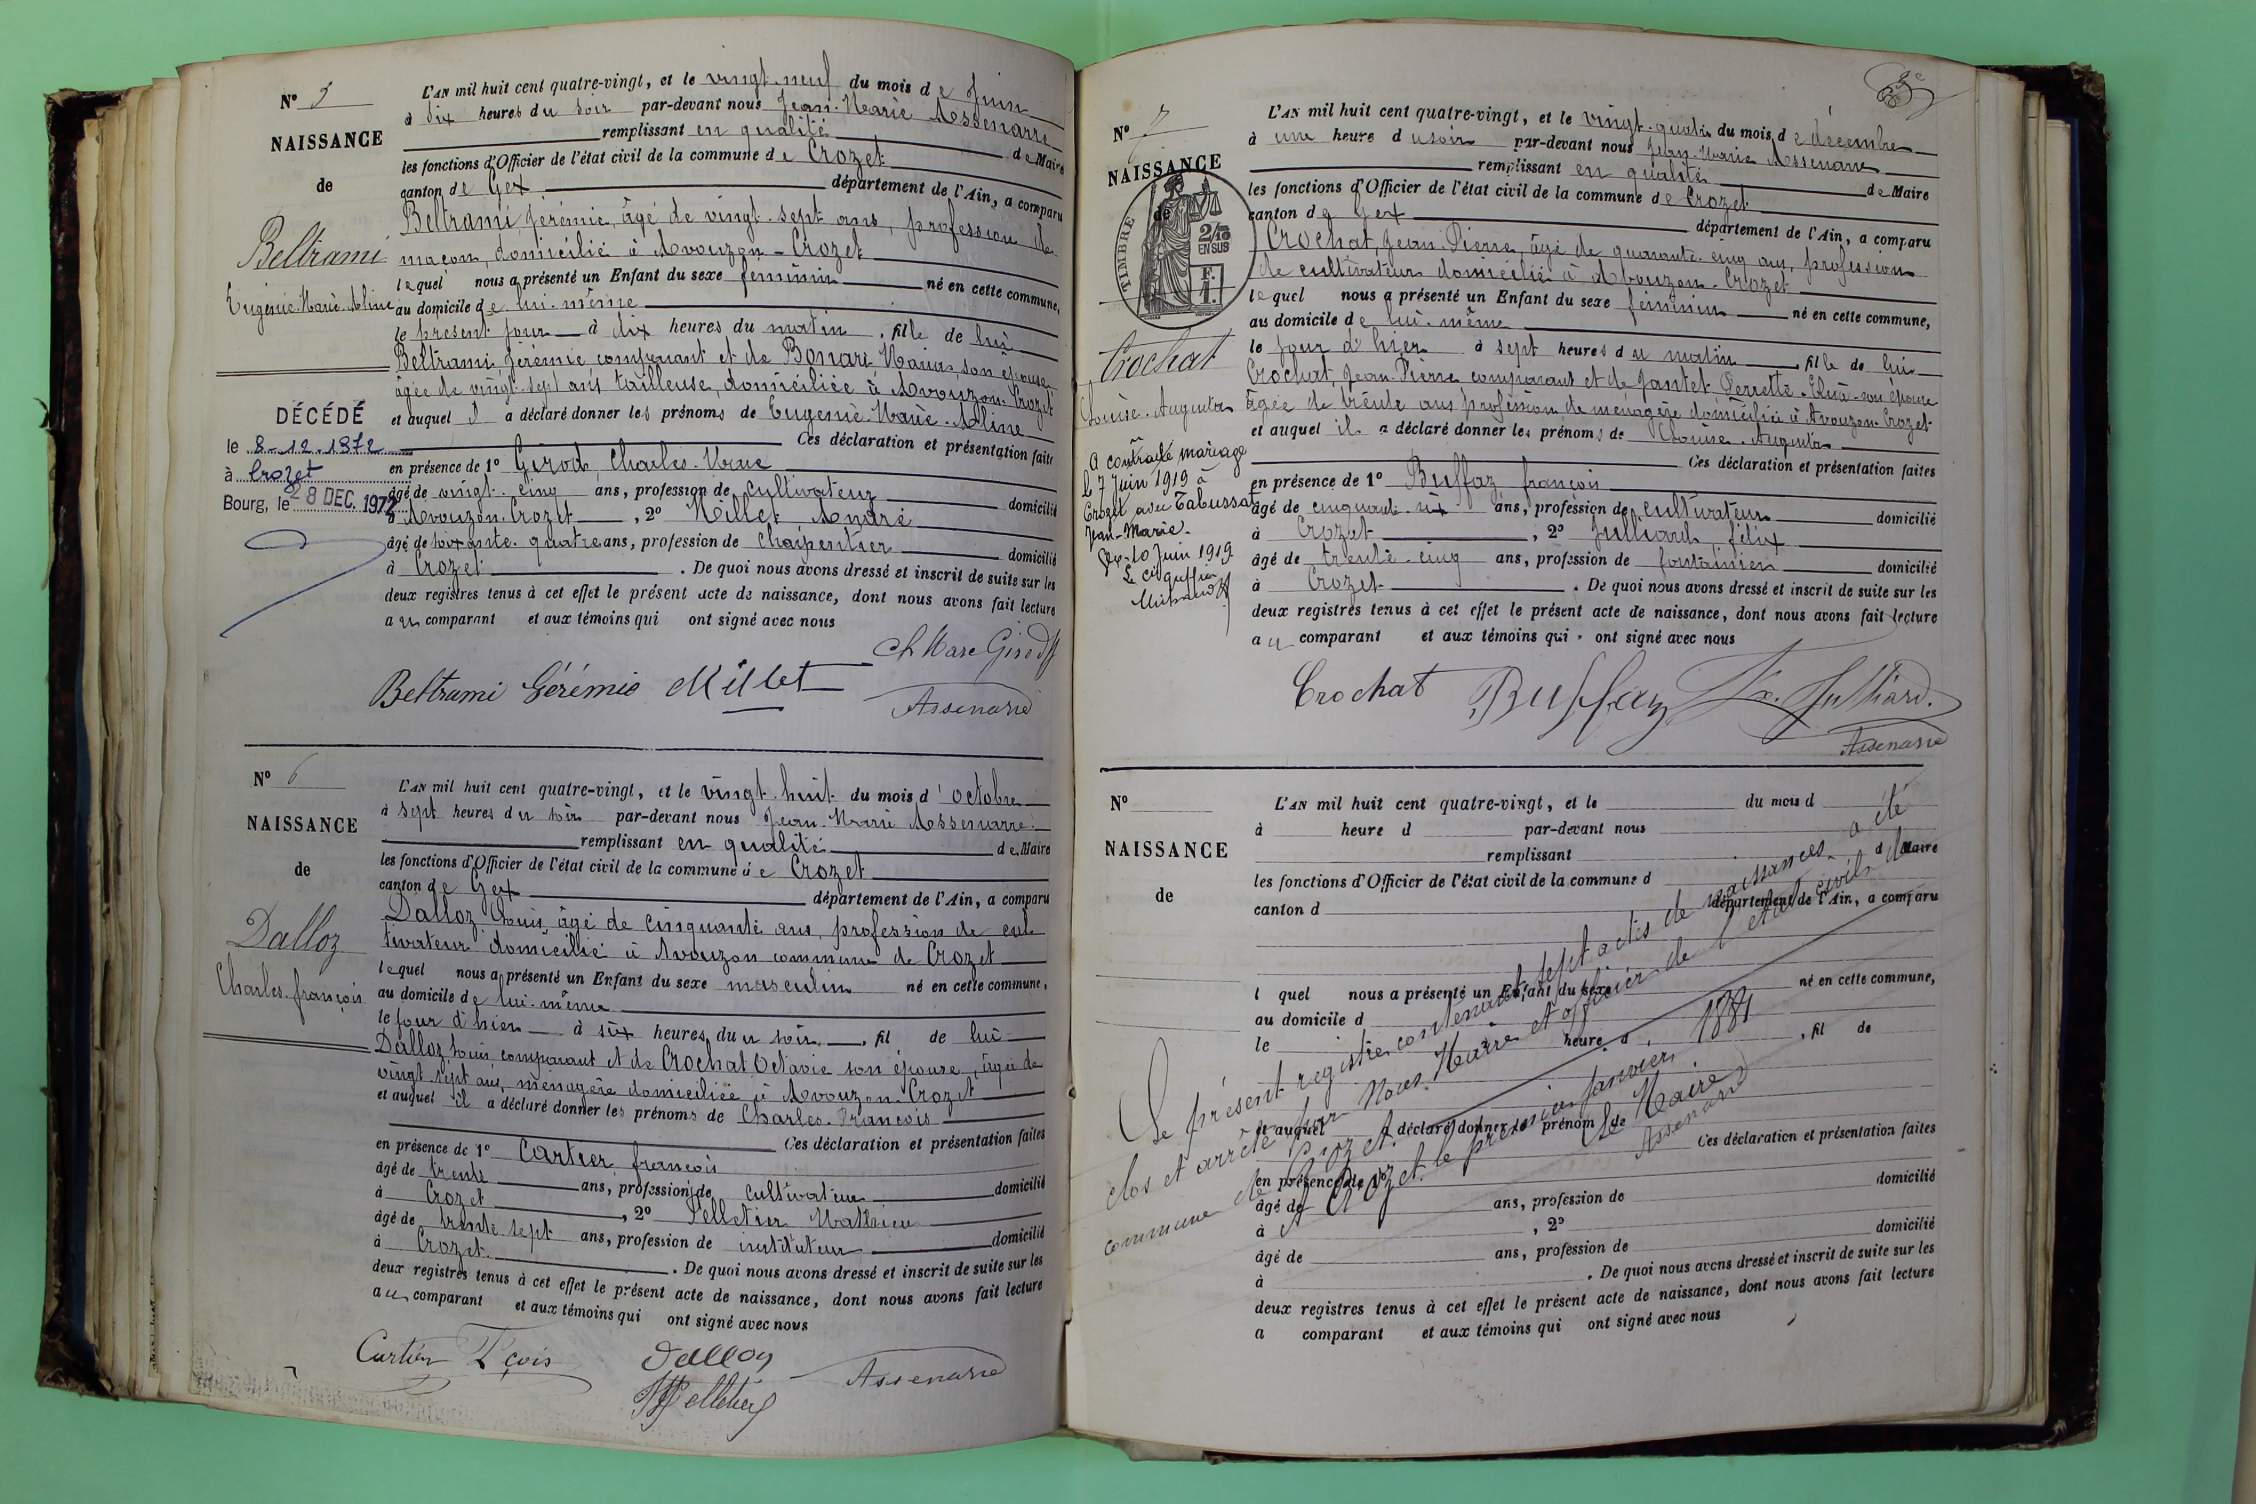 N° 5
NAISSANCE
de
Beltrami
Eugénie-Marie-Aline
DÉCÉDÉ
le 8-12-1972
à Crozet
Bourg, le 28 DEC. 1972
L'AN mil huit cent quatre-vingt, et le vingt-neuf du mois de Juin
à dix heures du soir par-devant nous Jean-Marie Assenarre
remplissant en qualité de Maire
les fonctions d'Officier de l'état civil de la commune de Crozet
canton de Gex département de l'Ain, a comparu
Beltrami, Jérémie, âgé de vingt-sept ans, profession de
maçon, domicilié à Avouzon-Crozet
lequel nous a présenté un Enfant du sexe féminin né en cette commune,
au domicile de lui-même
le présent jour à dix heures du matin, fille de lui
Beltrami, Jérémie comparant et de Bonari, Maria, son épouse,
âgée de vingt-sept ans tailleuse, domiciliée à Avouzon-Crozet
et auquel il a déclaré donner les prénoms de Eugénie-Marie-Aline
Ces déclaration et présentation faites
en présence de 1° Girod, Charles-Marie
âgé de vingt-cinq ans, profession de cultivateur domicilié
à Avouzon-Crozet, 2° Millet André
âgé de soixante-quatre ans, profession de charpentier domicilié
à Crozet. De quoi nous avons dressé et inscrit de suite sur les
deux registres tenus à cet effet le présent acte de naissance, dont nous avons fait lecture
au comparant et aux témoins qui ont signé avec nous
Ch Marc Girod
Beltrami Gérémie Millet Assenarre
N° 6
NAISSANCE
de
Dalloz
Charles-françois
L'AN mil huit cent quatre-vingt, et le vingt-huit du mois d'octobre
à sept heures du soir par-devant nous Jean-Marie Assenarre
remplissant en qualité de Maire
les fonctions d'Officier de l'état civil de la commune de Crozet
canton de Gex département de l'Ain, a comparu
Dalloz Louis, âgé de cinquante ans, profession de cul-
tivateur domicilié à Avouzon commune de Crozet
lequel nous a présenté un Enfant du sexe masculin né en cette commune,
au domicile de lui-même
le jour d'hier à six heures du soir, fil de lui
Dalloz Louis comparant et de Crochat Octavie son épouse, âgée de
vingt-sept ans, ménagère domiciliée à Avouzon-Crozet
et auquel il a déclaré donner les prénoms de Charles-François
Ces déclaration et présentation faites
en présence de 1° Cartier françois
âgé de trente ans, profession de cultivateur domicilié
à Crozet, 2° Pelletier Mathieu
âgé de trente-sept ans, profession de instituteur domicilié
à Crozet. De quoi nous avons dressé et inscrit de suite sur les
deux registres tenus à cet effet le présent acte de naissance, dont nous avons fait lecture
au comparant et aux témoins qui ont signé avec nous
Cartier Fçois Dalloz Assenarre
Pelletier
N° 7
NAISSANCE
de
TIMBRE
2/10
EN SUS
F.
1.
Crochat
Louise-Augusta
A contracté mariage
le 7 Juin 1919 à
Crozet avec Tabussat
Jean-Marie.
Gex-10 Juin 1919
L'AN mil huit cent quatre-vingt, et le vingt-quatre du mois de décembre
à une heure du soir par-devant nous Jean-Marie Assenarre
remplissant en qualité de Maire
les fonctions d'Officier de l'état civil de la commune de Crozet
canton de Gex département de l'Ain, a comparu
Crochat, Jean-Pierre, âgé de quarante-cinq ans, profession
de cultivateur domicilié à Avouzon-Crozet
lequel nous a présenté un Enfant du sexe féminin né en cette commune,
au domicile de lui-même
le jour d'hier à sept heures du matin, fille de lui
Crochat, Jean-Pierre comparant et de Jantet Perrette son épouse
âgée de trente ans profession de ménagère domiciliée à Avouzon-Crozet
et auquel il a déclaré donner les prénoms de Louise-Augusta
Ces déclaration et présentation faites
en présence de 1° Buffaz françois
âgé de cinquante-six ans, profession de cultivateur domicilié
à Crozet, 2° Julliard, félix
âgé de trente-cinq ans, profession de fontainier domicilié
à Crozet. De quoi nous avons dressé et inscrit de suite sur les
deux registres tenus à cet effet le présent acte de naissance, dont nous avons fait lecture
au comparant et aux témoins qui ont signé avec nous
Crochat Buffaz Fx. Julliard.
Assenarre
N°
NAISSANCE
de
L'AN mil huit cent quatre-vingt, et le du mois d
à heure d par-devant nous
remplissant d Maire
les fonctions d'Officier de l'état civil de la commune d
canton d département de l'Ain, a comparu
l quel nous a présenté un Enfant du sexe né en cette commune,
au domicile d
le heure d, fil de
et auquel a déclaré donner le prénom de
Ces déclaration et présentation faites
en présence de 1°
âgé de ans, profession de domicilié
à, 2°
âgé de ans, profession de domicilié
à. De quoi nous avons dressé et inscrit de suite sur les
deux registres tenus à cet effet le présent acte de naissance, dont nous avons fait lecture
a comparant et aux témoins qui ont signé avec nous
Le présent registre contenant sept actes de naissances a été
clos et arrêté par Nous Maire et officier de l'état civil de la
commune de Crozet.
A Crozet le premier Janvier 1881
Le Maire
Assenarre